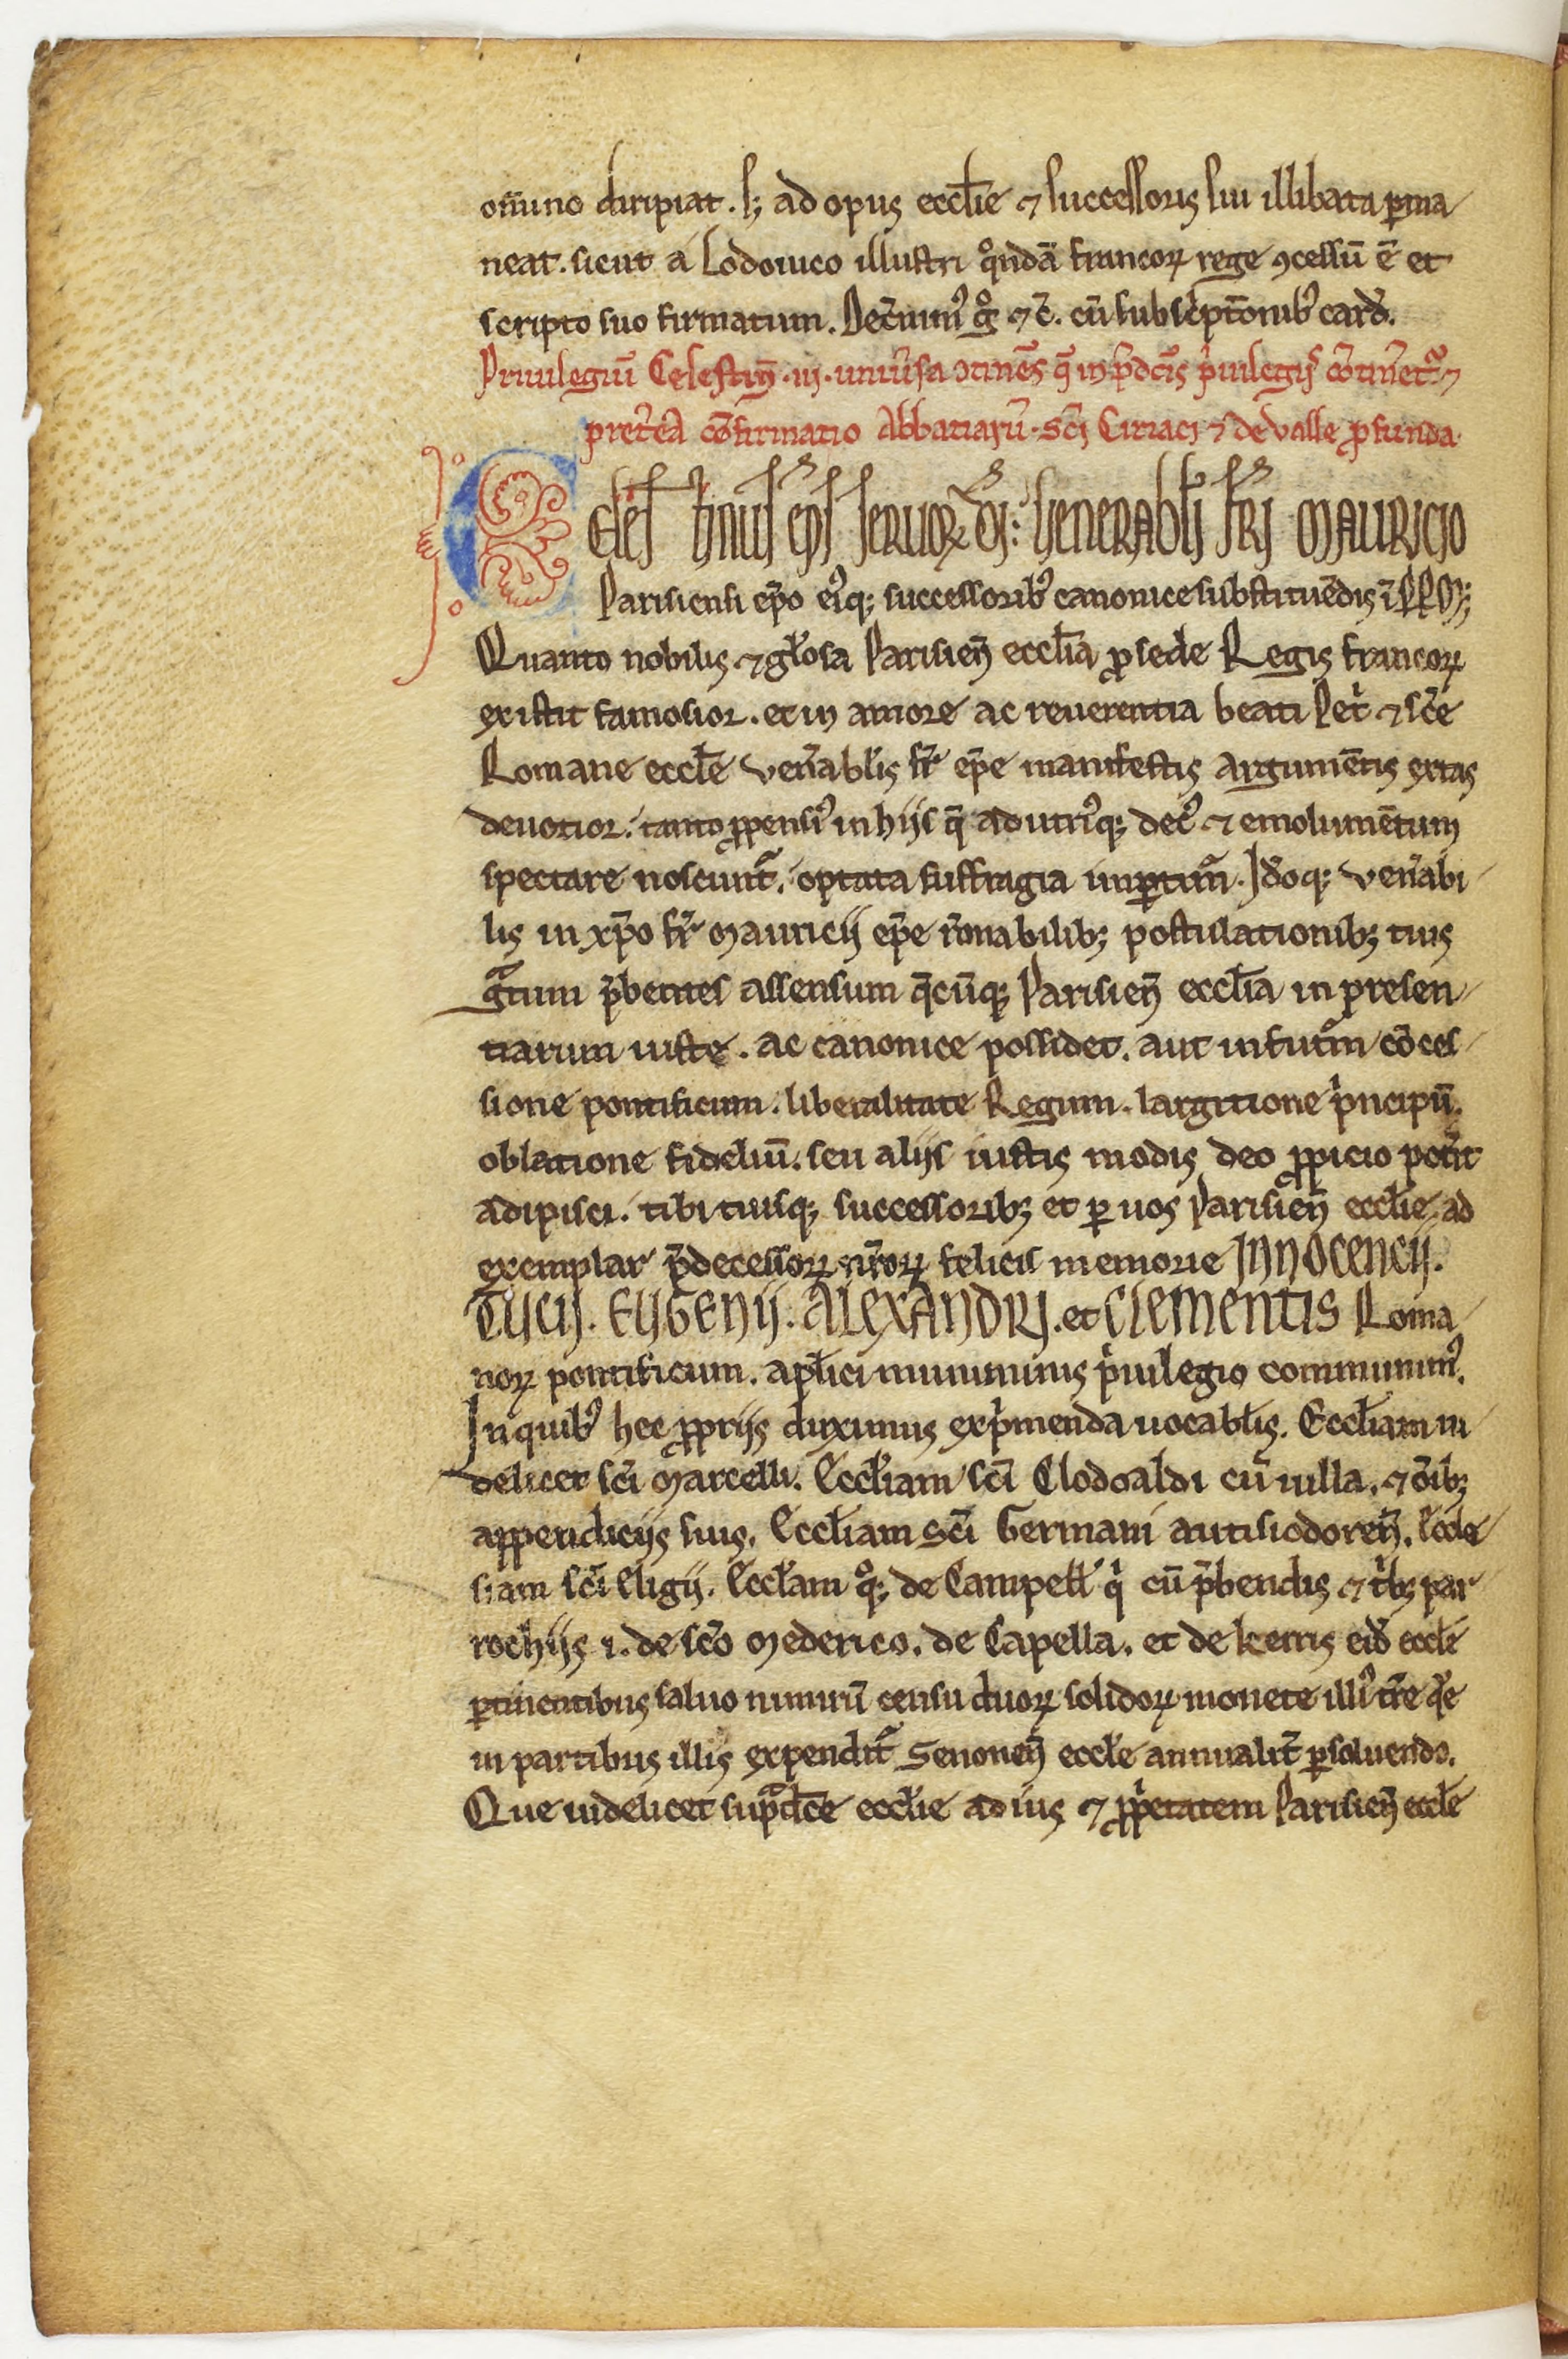 om̅ino diripiat. sꝫ ad opus eccl̅ie ⁊ successoris sui illibata ꝑma
neat. sicut a Lodouico illustri qͦndā francoꝝ rege ꝯcessū ē et
scripto suo firmatum. Dec̅nimꝰ gͦ ⁊ c̅. cū subsc̓pto̅nibꝰ card̓.
Priuilegiū Celestin̅ .iii. uniu̓sa ↄtine̅s q̅ in p̅dc̅is p̓uilegiis co̅tine̅tᷣ ⁊
pret̓ea co̅firmatio Abbatiaꝝ sc̅i Ciriaci ⁊ de valle ꝓfunda.
Celestinus ep̅s seruus seruoꝝ dī. Venerabili fr̅i Mauricio
Parisiensi ep̅o eiꝰqꝫ successoribꝰ canonice substitue̅dis ī PPM;
Quanto nobilis ⁊ gl̅osa Parisien̅ eccl̅ia ꝓ sede Regis francoꝝ
existit famosior. et in amore ac reuerentia beati Pet̓ ⁊ sc̅e
Romane eccl̅e ven̅abilis fr̅ ep̅e manifestis argume̅tis extas
deuotior. tanto ꝓpensiꝰ in hijs q̅ ad utriꝰqꝫ decꝰ ⁊ emolume̅tum
spectare noscunt᷑. optata suffragia imꝑtim᷑. Id̓oqꝫ ven̓abi
lis in xp̅o fr̅ Mauricij ep̅e r̅onabilibꝫ postulationibꝫ tuis
gᷓtum p̅bentes assensum q̅cūqꝫ Parisien̅ eccl̅ia in presen
tiarum iuste. ac canonice possidet. aut in futuͦm co̅ces
sione pontificum. liberalitate Regum. largitione p̓ncipū.
oblatione fideliū. seu alijs iustis modis deo ꝓpicio pot̓it
adipisci. tibi tuisqꝫ successoribꝫ et ꝑ uos Parisien̅ eccl̅ie ad
exemplar p̅decessoꝝ nr̅oꝝ felicis memorie Innocencij.
Lucij. Eugenij. Alexandri. et Clementis Roma
noꝝ pontificum. ap̅lici muniminis p̓uilegio communimꝰ.
In quibꝰ hec ꝓprijs duximus exp̓menda uocabl̅is. Eccl̅iam ui
delicet sc̅i Marcelli. Eccl̅iam sc̅i Clodoaldi cū uilla. ⁊ o̅ibꝫ
appendicijs suis. Eccl̅iam Sc̅i Germani autisiodoren̅. Eccle
siam sc̅i Eligij. Eccl̅am qͦqꝫ de Campell̓ qͥ cū p̅bendis ⁊ tͥbꝫ par
rochijs .i. de sc̅o Mederico. de Capella. et de kerris eid̓ eccl̅e
ꝑtinentibus saluo nimirū censu duoꝝ solidoꝝ monete illiꝰ tr̅e q̓e
in partibus illis expendit᷑ Senonen̅ eccl̅e annualit̓ ꝑsoluendo.
Que uidelicet supᷓdc̅e eccl̅ie ad ius ⁊ ꝓp̓etatem Parisien̅ eccl̅e